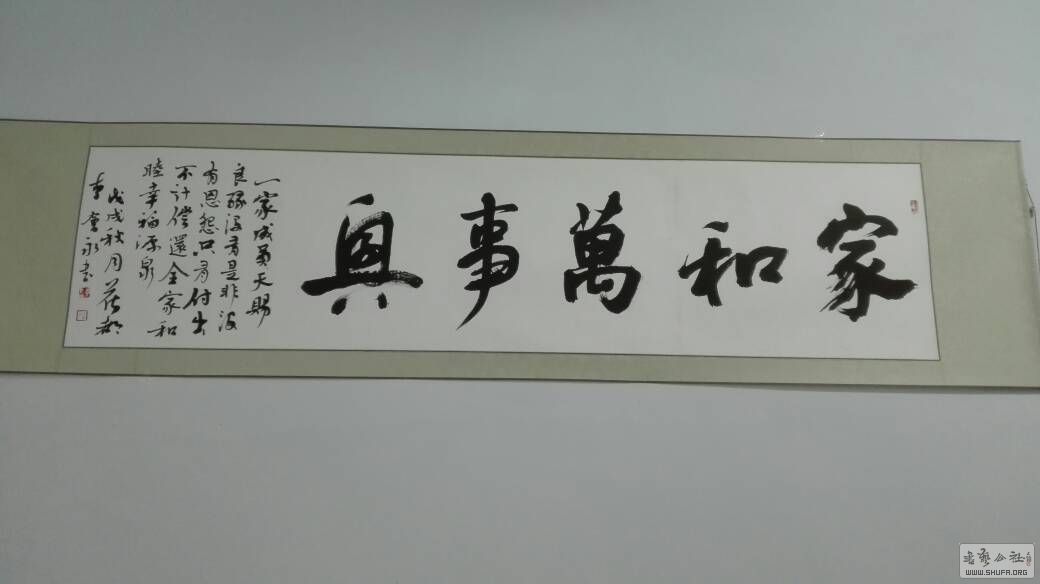 家和萬事興
一家成員天賜
良緣没有是非没
有恩怨只有付出
不计償還全家和
睦幸福源泉
戊戌秋月
永书
書藝公社
WWW.SHUFA.ORG